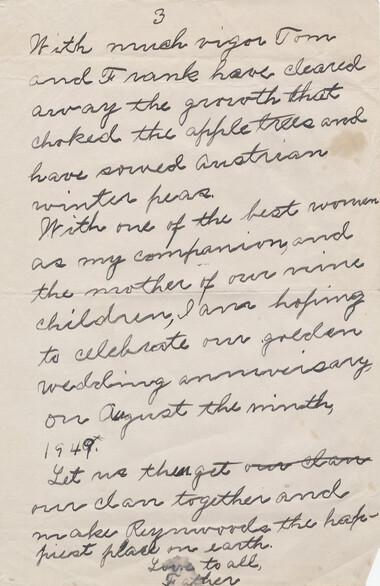 3
With much vigor Tom
and Frank have cleared
away the growth that
choked the apple trees and
have sowed Austrian
winter peas.
With one of the best women
as my companion, and
the mother of our nine
children, I am hoping
to celebrate our golden
wedding anniversary
on August the ninth,
1949.
Let us then get our clan
our clan together and
make Reynwoods the hap-
piest place on earth.
Love to all,
Father